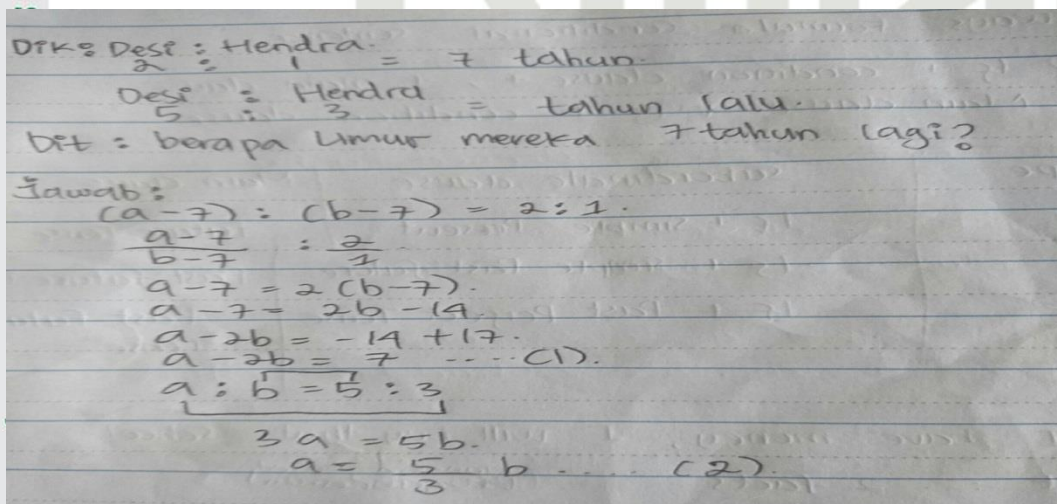 Dik: Desi : Hendra.
2 : 1 = 7 tahun.
Desi : Hendra
5 : 3 = tahun lalu.
Dit : berapa umur mereka 7 tahun lagi?
Jawab:
(a-7) : (b-7) = 2:1.
a-7 : 2
b-7 1
a-7 = 2 (b-7).
a-7 = 2b-14.
a-2b = -14 +17.
a-2b = 7 .... (1).
a : b = 5 : 3
3a = 5b.
a = 5 b .... (2).
3